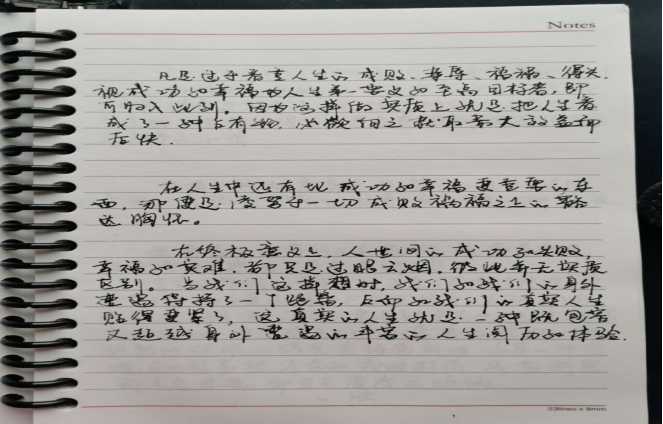 Notes
凡是过于看重人生的成败、荣辱、福祸、得失,
视成功和幸福为人生第一要义和至高目标者,即
可归入此列。因为这样做实质上就是把人生看
成了一种占有物,必欲向之获取最大效益而
后快.
在人生中还有比成功和幸福更重要的东
西,那便是凌驾于一切成败祸福之上的豁
达胸怀。
在终极意义上,人世间的成功和失败,
幸福和灾难,都只是过眼云烟,彼此并无实质
区别。当我们这样想时,我们和我们的身外
遭遇保持了一个距离,反而和我们的真实人生
贴得更紧了,这真实的人生就是一种既包容
又超越身外遭遇的丰富的人生阅历和体验.
23lines x 8mm